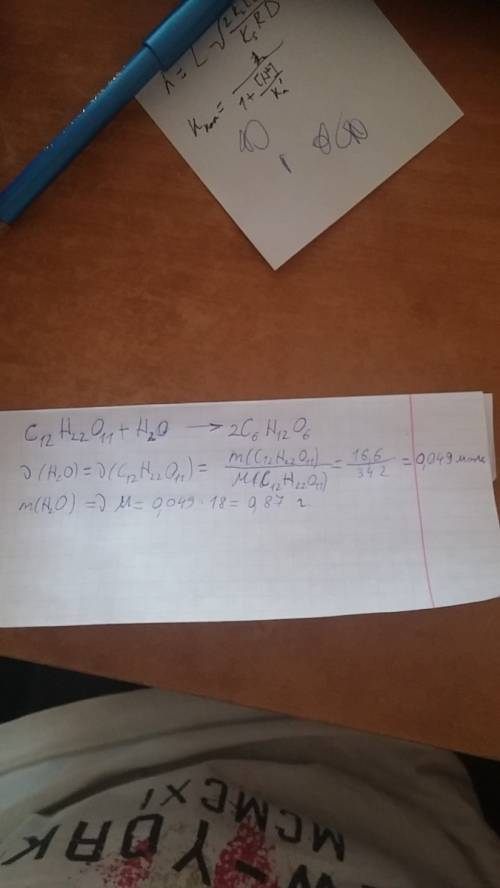 1 + [H⁺]/Kₐ
C₁₂H₂₂O₁₁ + H₂O → 2C₆H₁₂O₆
ν(H₂O) = ν(C₁₂H₂₂O₁₁) = m(C₁₂H₂₂O₁₁)/M(C₁₂H₂₂O₁₁) = 16,6/342 = 0,049 моль
m(H₂O) = ν M = 0,049 · 18 = 0,87 г.
MCMCXI
W-YORK